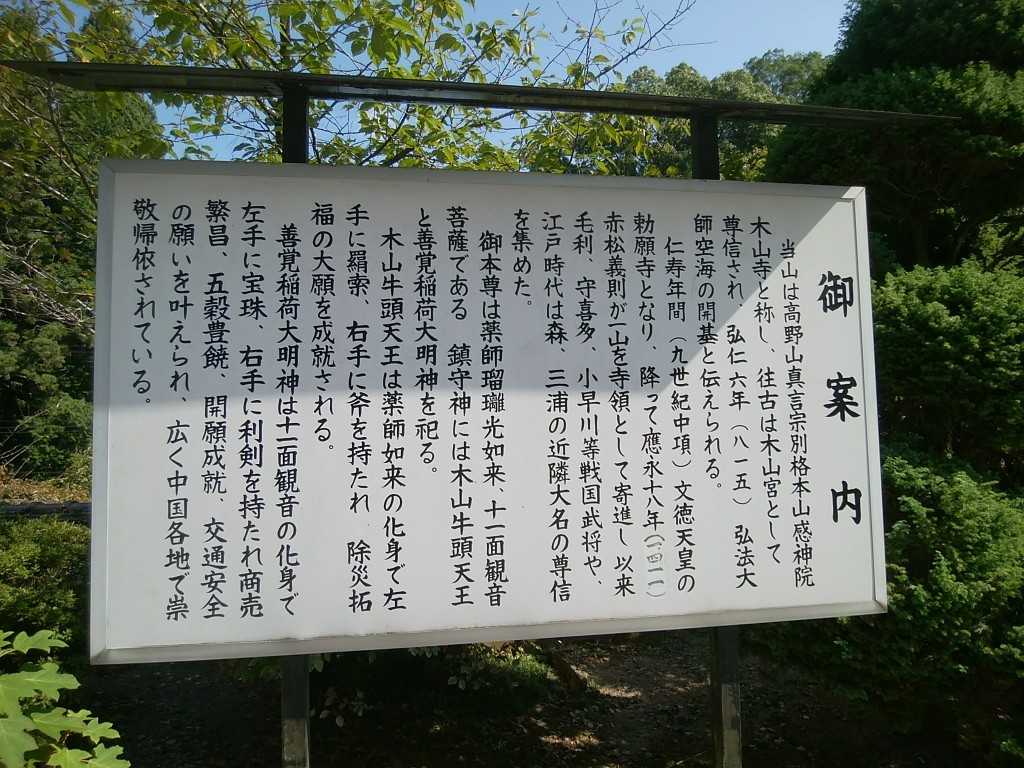 御案内
当山は高野山真言宗別格本山感神院
木山寺と称し、往古は木山宮として
尊信され、弘仁六年（八一五）弘法大
師空海の開基と伝えられる。
仁寿年間（九世紀中項）文徳天皇の
勅願寺となり、降って應永十八年（一四一一）
赤松義則が一山を寺領として寄進し以来
毛利、守喜多、小早川等戦国武将や、
江戸時代は森、三浦の近隣大名の尊信
を集めた。
御本尊は薬師瑠璃光如来、十一面観音
菩薩である　鎮守神には木山牛頭天王
と善覚稲荷大明神を祀る。
木山牛頭天王は薬師如来の化身で左
手に羂索、右手に斧を持たれ　除災拓
福の大願を成就される。
善覚稲荷大明神は十一面観音の化身で
左手に宝珠、右手に利剣を持たれ商売
繁昌、五穀豊饒、開願成就、交通安全
の願いを叶えられ、広く中国各地で崇
敬帰依されている。